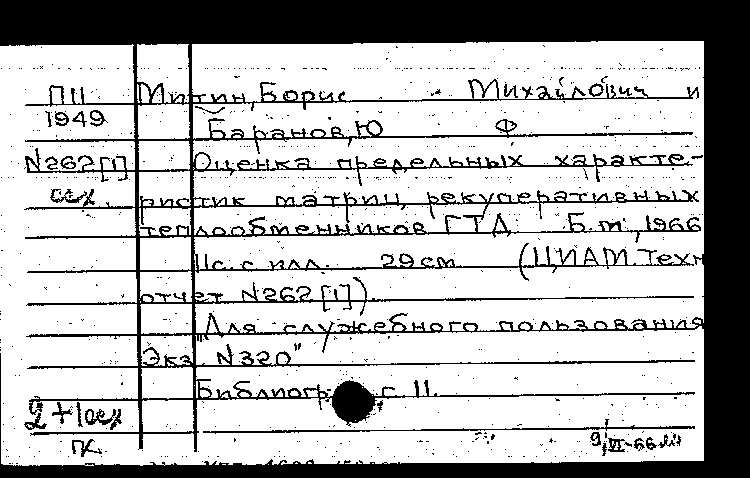 П11 Митин, Борис Михайлович и
1949
Баранов, Ю Ф
N262[1] Оценка предельных характе-
сех. ристик матриц рекуперативных
теплообменников ГТД. Б.м., 1966
11с. с илл. 29 см. (ЦИАМ. Техн
отчет N262[1]).
"Для служебного пользования
Экз N320"
Библиогр с 11.
2+1сех
ПХ 9/VI-66